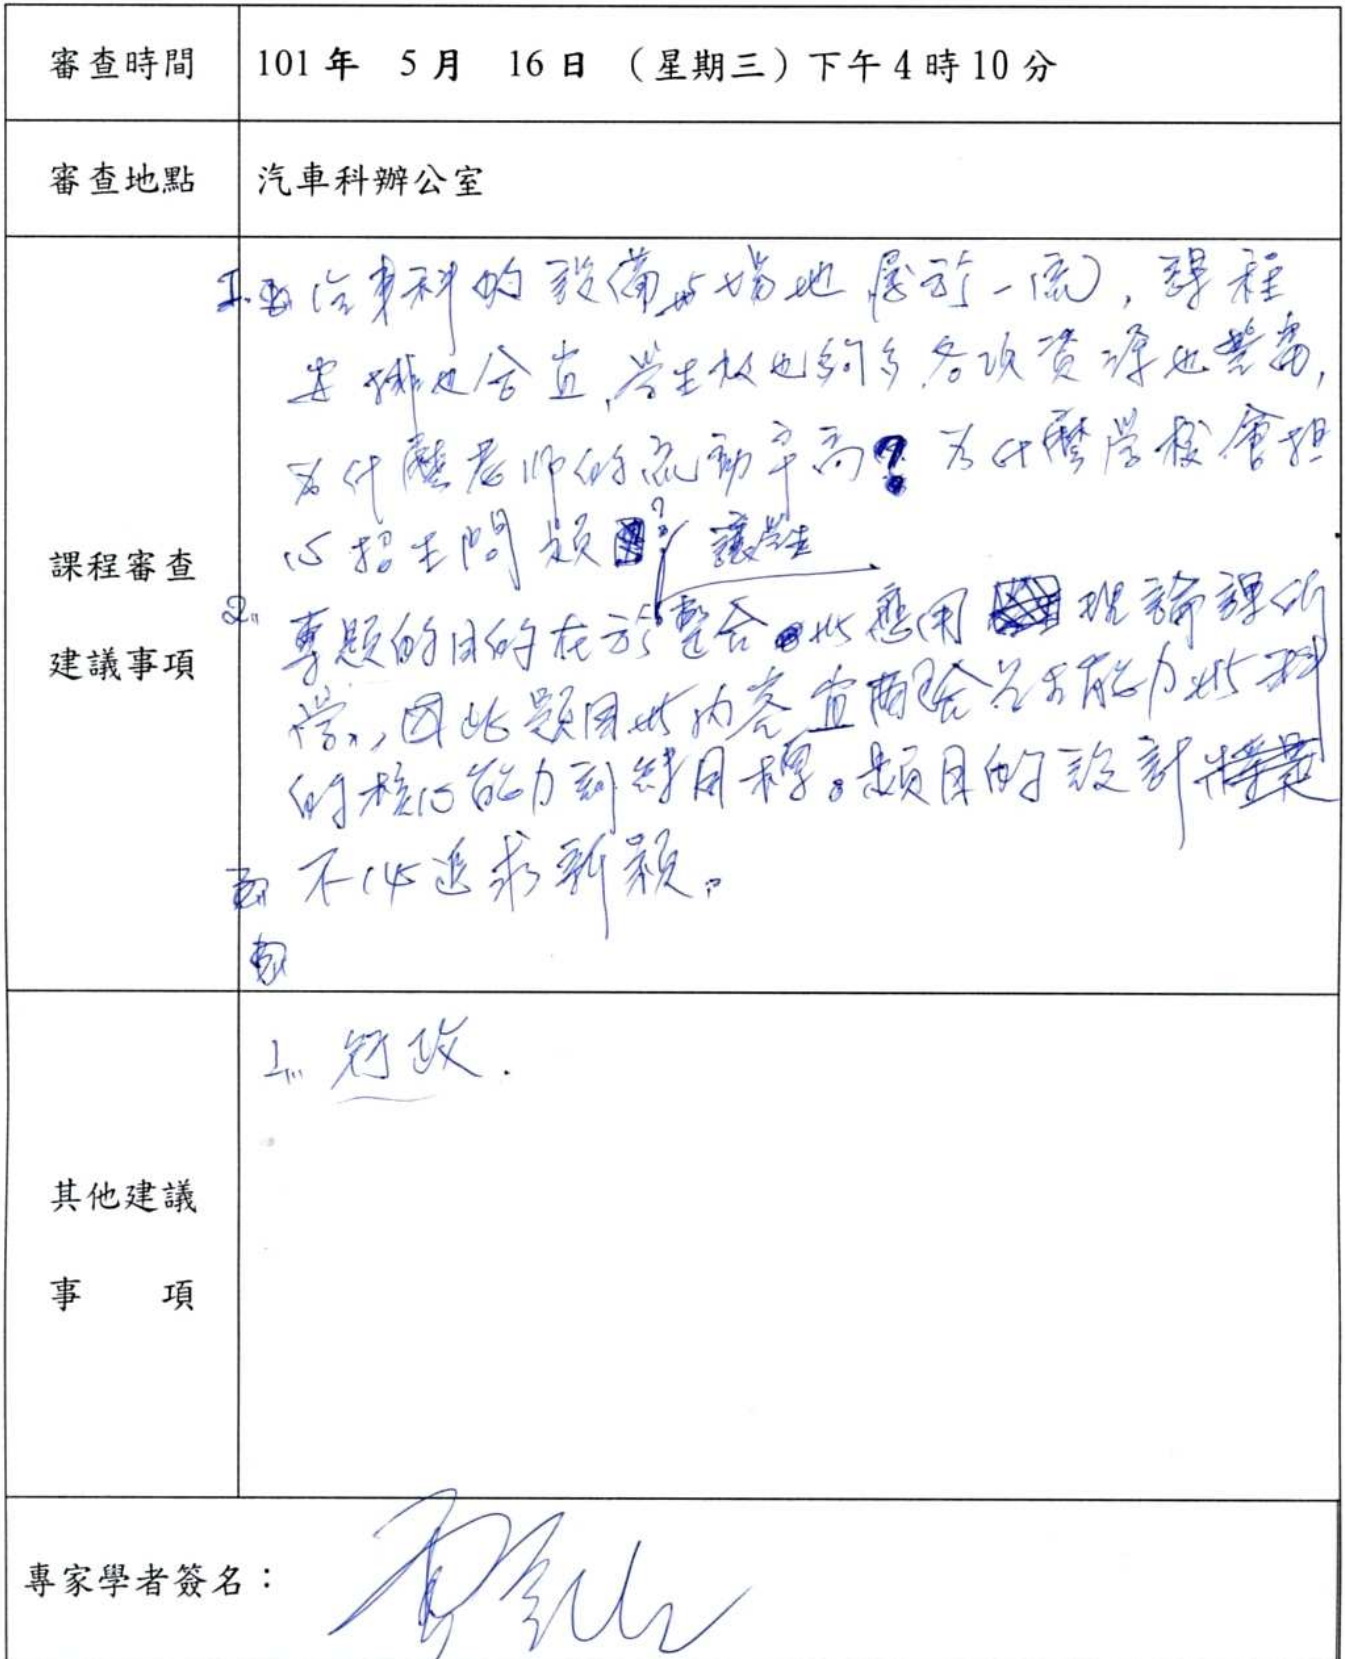 審查時間
101 年 5 月 16 日 （星期三）下午 4 時 10 分
審查地點
汽車科辦公室
課程審查
建議事項
1. 汽車科的設備與場地屬於一流，課程
安排也合宜，學生數也夠多，各項資源也豐富，
為什麼老師的流動率高？為什麼學校會担
心招生問題？
讓學生
2. 專題的目的在於整合與應用理論課所
學，因此題目與內容宜配合能力與科
的核心能力訓練目標。題目的設計
不必追求新穎。
其他建議
事 項
1. 行政.
專家學者簽名：